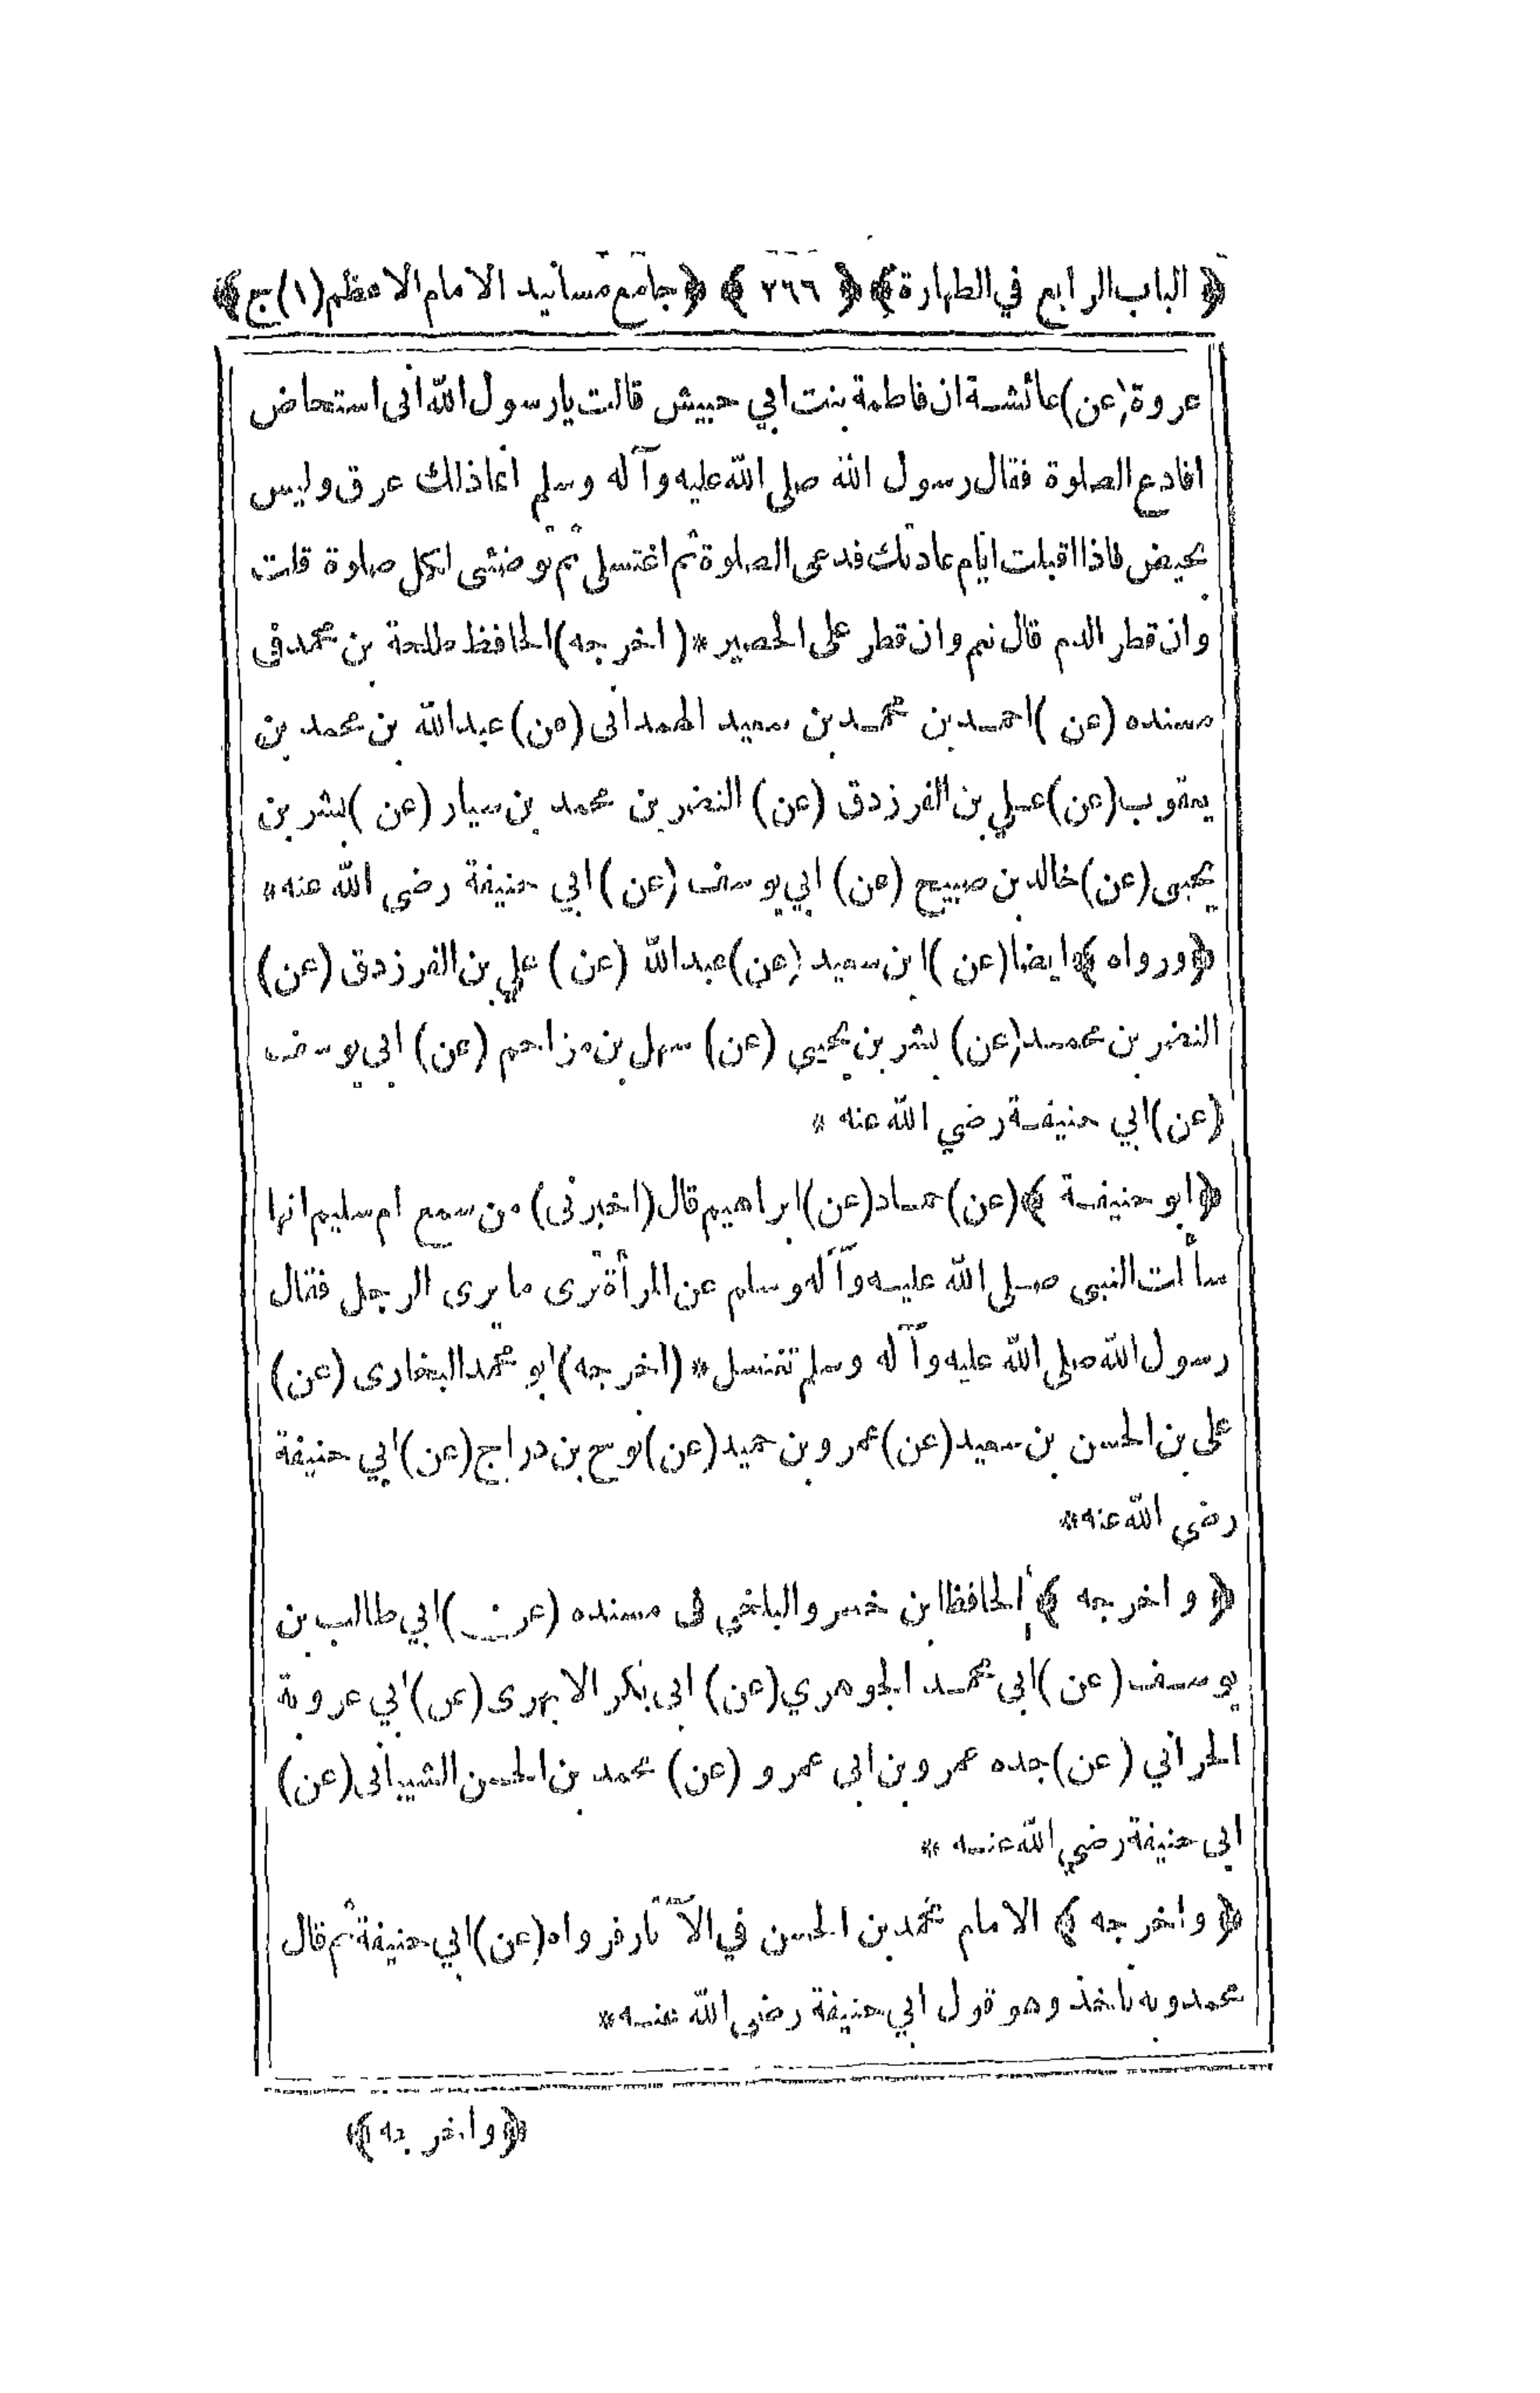 ﴿ الباب الرابع في الطهارة ﴾ ﴿ ٢٦٦ ﴾ ﴿ جامع مسانيد الامام الاعظم (١) ج ﴾
عروة (عن) عائشة ان فاطمة بنت ابي حبيش قالت يا رسول الله انى استحاض
افادع الصلوة فقال رسول الله صلى الله عليه وآله وسلم انما ذلك عرق وليس
بحيض فاذا اقبلت ايام عادتك فدعى الصلوة ثم اغتسلى ثم توضئى لكل صلوة قلت
وان قطر الدم قال نعم وان قطر على الحصير * (اخرجه) الحافظ طلحة بن محمد فى
مسنده (عن) احمد بن محمد بن سعيد الهمدانى (عن) عبد الله بن محمد بن
يعقوب (عن) علي بن الفرزدق (عن) النضر بن محمد بن سيار (عن) بشر بن
يحيى (عن) خالد بن صبيح (عن) ابي يوسف (عن) ابي حنيفة رضى الله عنه *
﴿ ورواه ﴾ ايضا (عن) ابن سعيد (عن) عبد الله (عن) علي بن الفرزدق (عن)
النضر بن محمد (عن) بشر بن يحيى (عن) سهل بن مزاحم (عن) ابى يوسف
(عن) ابي حنيفة رضي الله عنه *
﴿ ابو حنيفة ﴾ (عن) حماد (عن) ابراهيم قال (اخبرنى) من سمع ام سليم انها
سألت النبى صلى الله عليه وآله وسلم عن المرأة ترى ما يرى الرجل فقال
رسول الله صلى الله عليه وآله وسلم تغتسل * (اخرجه) ابو محمد البخارى (عن)
على بن الحسن بن سعيد (عن) عمرو بن حميد (عن) نوح بن دراج (عن) ابي حنيفة
رضي الله عنه *
﴿ واخرجه ﴾ الحافظ ابن خسرو البلخي فى مسنده (عن) ابي طالب بن
يوسف (عن) ابى محمد الجوهري (عن) ابى بكر الابهرى (عن) ابي عروبة
الحراني (عن) جده عمرو بن ابى عمرو (عن) محمد بن الحسن الشيبانى (عن)
ابى حنيفة رضي الله عنه *
﴿ واخرجه ﴾ الامام محمد بن الحسن في الآثار فرواه (عن) ابي حنيفة ثم قال
محمد وبه ناخذ وهو قول ابي حنيفة رضى الله عنه *
﴿ واخرجه ﴾